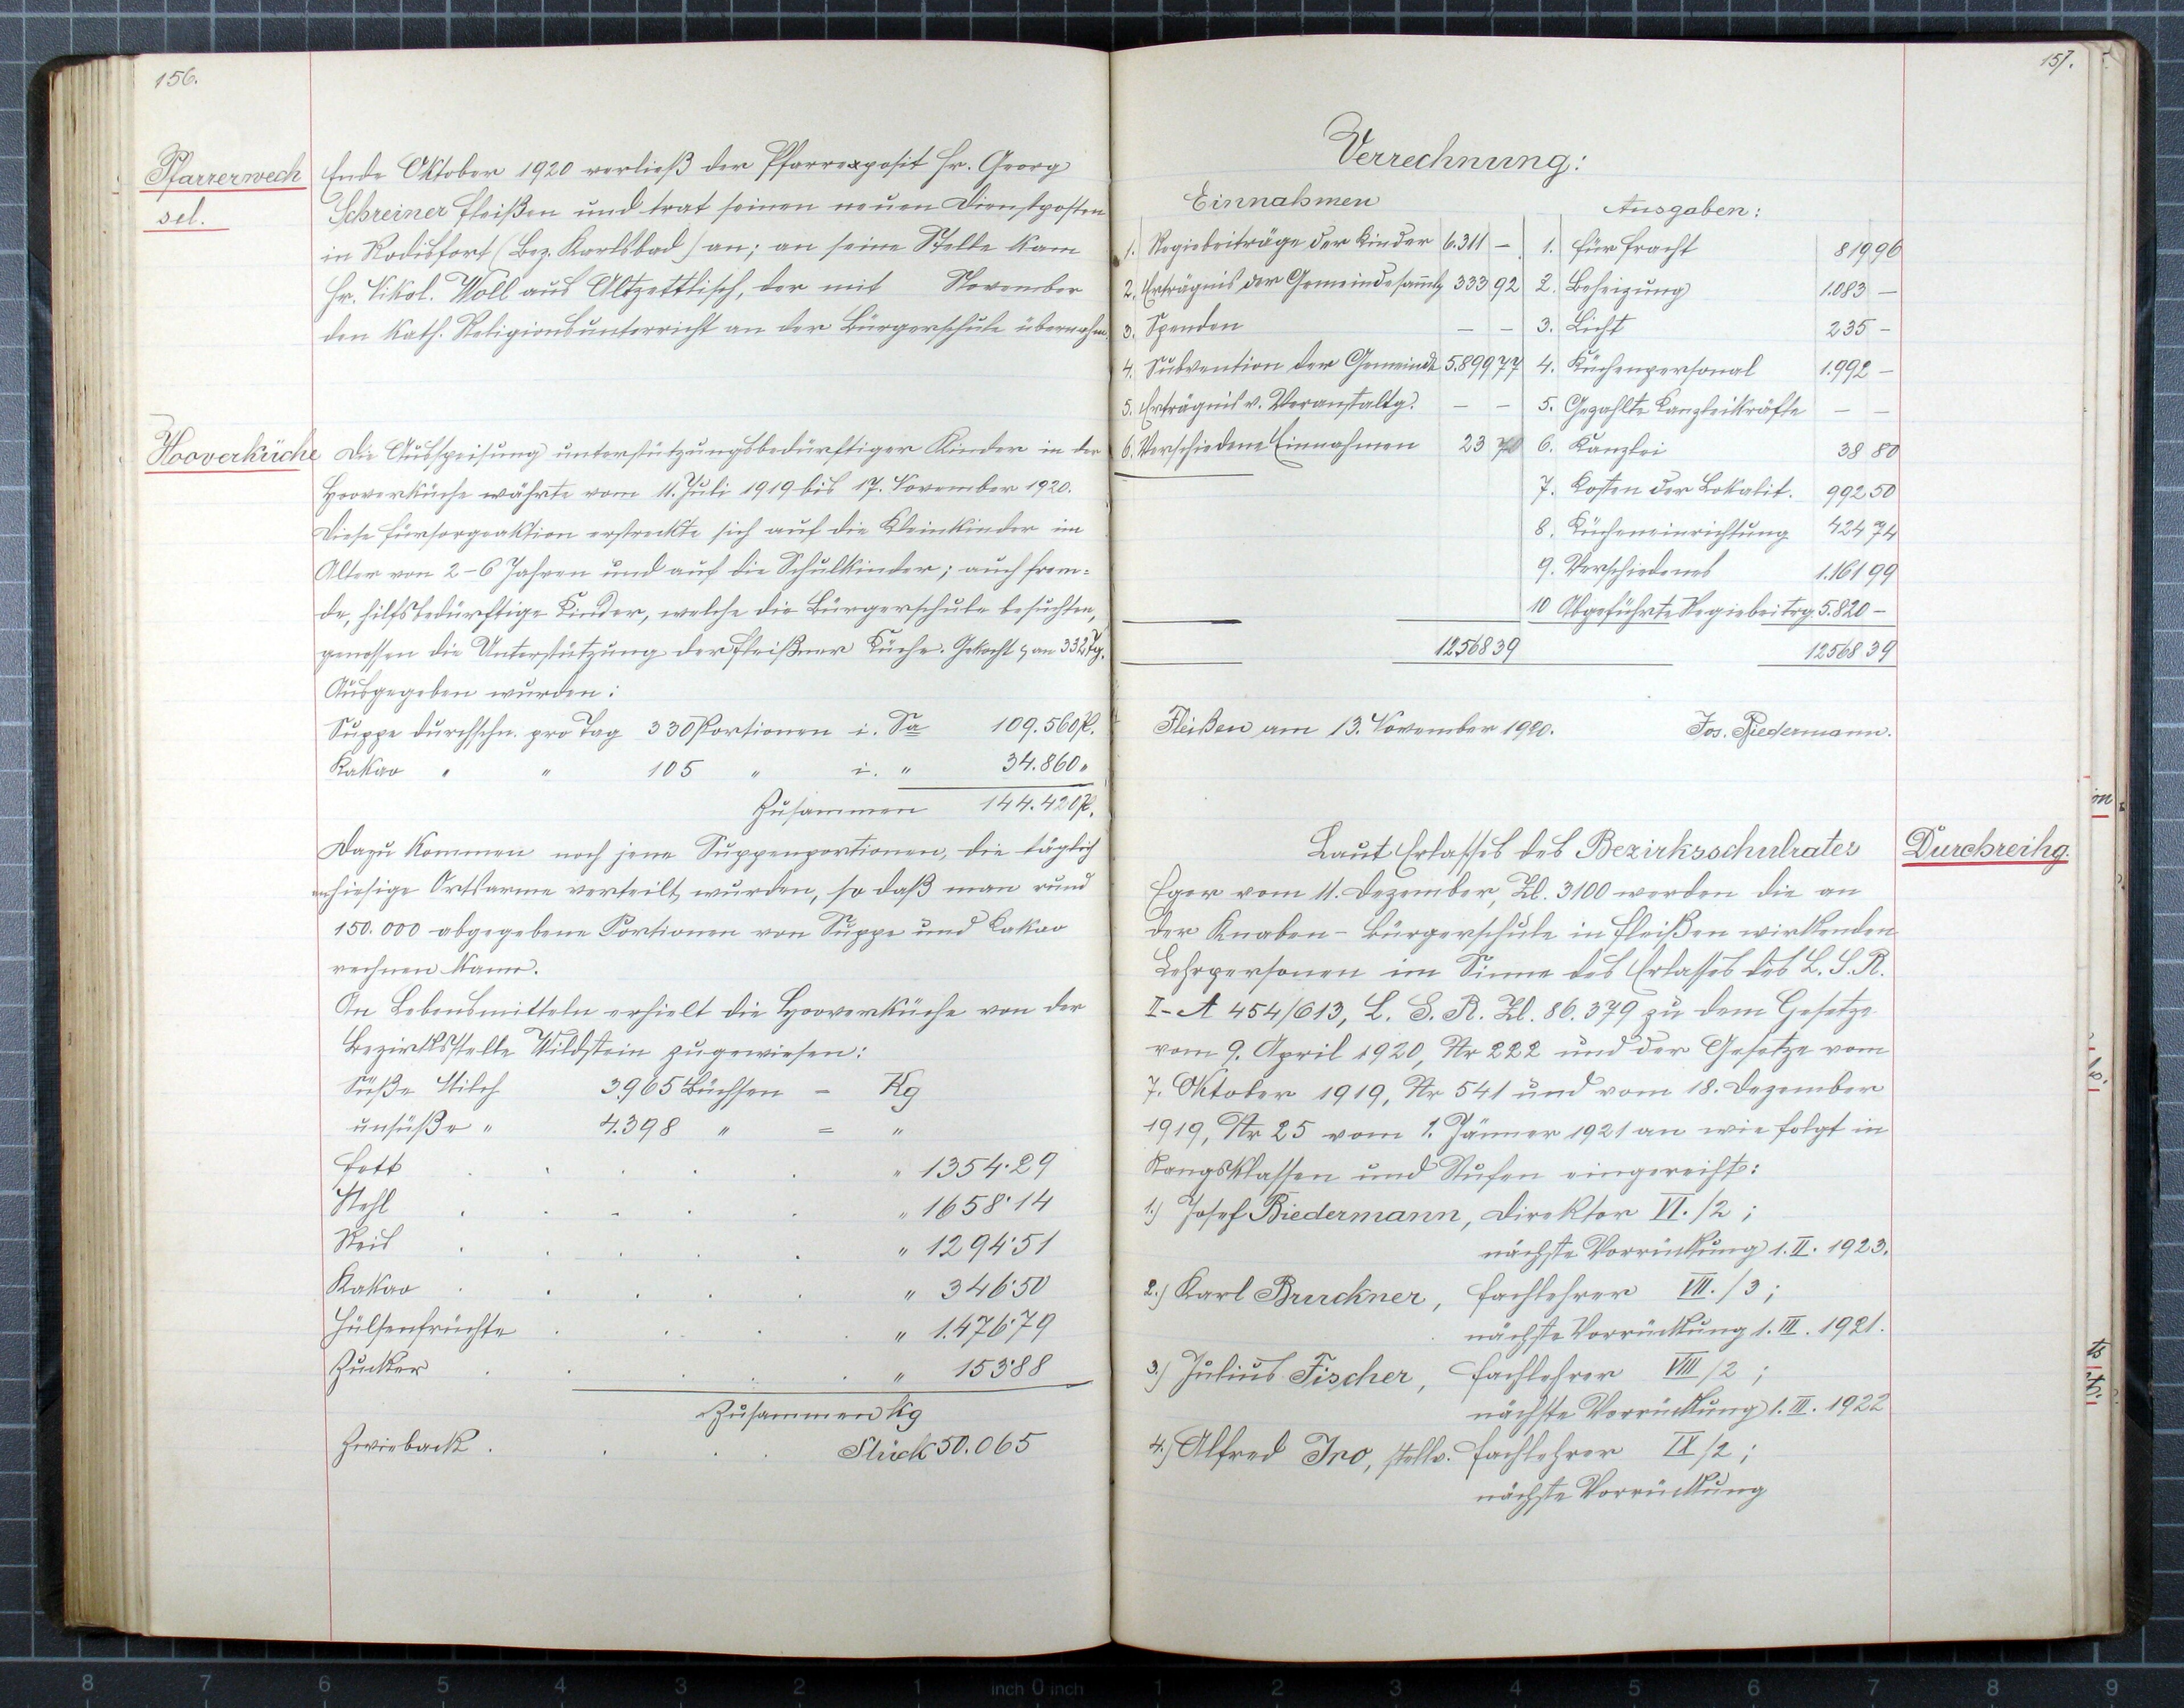 156.
Pfarrerwech
sel.
Ende Oktober 1920 verließ der Pfarrexposit Hr. Georg
Schreiner Fleißen und trat seinen neuen Dienstposten
in Rodisfort (Bez. Karlsbad) an; an seine Stelle kam
Hr. Nikol. Woll aus Altzettlisch, der mit November
den kath. Religionsunterricht an der Bürgerschule übernahm.
Hooverküche
Die Ausspeisung unterstützungsbedürftiger Kinder in der
Hooverküche währte vom 11. Juli 1919 bis 17. November 1920.
Diese Fürsorgeaktion erstreckte sich auf die Kleinkinder im
Alter von 2-6 Jahren und auf die Schulkinder; auch frem=
de, hilfsbedürftige Kinder, welche die Bürgerschule besuchten,
genossen die Unterstützung der Fleißner Küche. Gekocht an 332 Tg.
Ausgegeben wurden:
Suppe durchschn. pro Tag 330 Portionen i. Sa 109.560 P.
Kakao " " 105 " i. " 34.860 "
Zusammen 144.420 P.
Dazu kommen noch jene Suppenportionen, die täglich
an hiesige Ortsarme verteilt wurden, so daß man rund
150.000 abgegebene Portionen von Suppe und Kakao
rechnen kann.
An Lebensmitteln erhielt die Hooverküche von der
Bezirksstelle Wildstein zugewiesen:
Süße Milch 3.965 Büchsen = Kg
unsüße " 4.398 " = "
Fett . . . . . " 1354·29
Mehl . . . . . " 1658·14
Reis . . . . . " 1294·51
Kakao . . . . . " 346·50
Hülsenfrüchte . . . . " 1.476·79
Zucker . . . . . " 153·88
Zusammen Kg
Zwieback . . . Stück 50.065
157.
Verrechnung:
Einnahmen Ausgaben:
1. Regiebeiträge der Kinder 6.311 — 1. für Fracht 819 96
2. Erträgnis der Gemeindesamlg 333 92 2. Beheizung 1.083 —
3. Spenden — — 3. Licht 235 —
4. Subvention der Gemeinde 5.899 77 4. Küchenpersonal 1.992 —
5. Erträgnis v. Veranstaltg. — — 5. Gezahlte Kanzleikräfte — —
6. Verschiedene Einnahmen 23 70 6. Kanzlei 38 80
7. Kosten der Lokalit. 992 50
8. Kücheneinrichtung 424 74
9. Verschiedenes 1.161 99
10 Abgeführte Regiebeitrg. 5.820 —
12568 39 12568 39
Fleißen am 13. November 1920. Jos. Biedermann.
Durchreihg.
Laut Erlasses des Bezirksschulrates
Eger vom 11. Dezember, Zl. 3100 werden die an
der Knaben-Bürgerschule in Fleißen wirkenden
Lehrpersonen im Sinne des Erlasses des L. S. R.
II-A 454/613, L. S. R. Zl. 86.379 zu dem Gesetze
vom 9. April 1920, Nr 222 und der Gesetze vom
7. Oktober 1919, Nr 541 und vom 18. Dezember
1919, Nr 25 vom 1. Jänner 1921 an wie folgt in
Rangsklassen und Stufen eingereiht:
1.) Josef Biedermann, Direktor VI./2;
nächste Vorrückung 1. II. 1923.
2.) Karl Bruckner, Fachlehrer VII./3;
nächste Vorrückung 1. III. 1921.
3.) Julius Fischer, Fachlehrer VIII/2;
nächste Vorrückung 1. III. 1922
4.) Alfred Ino, stellv. Fachlehrer IX/2;
nächste Vorrückung